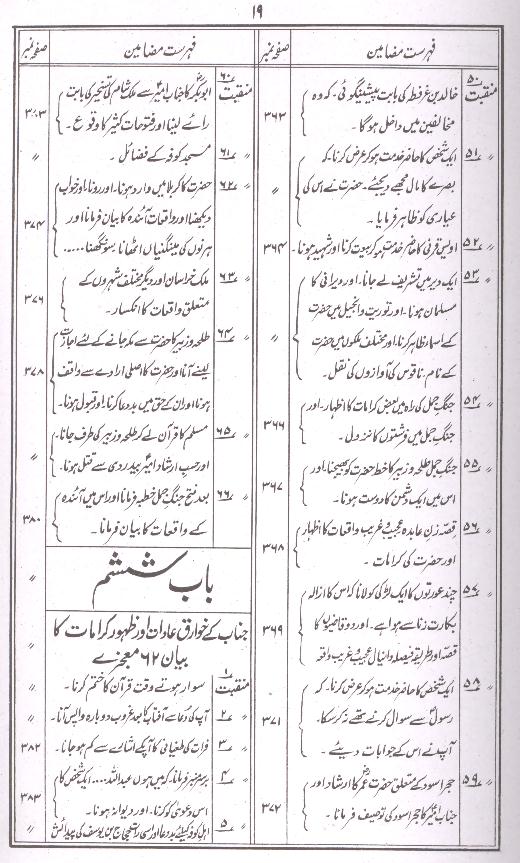 ۱۹
فہرست مضامین
صفحہ نمبر
۵۰
منقبت
خالد بن عرفطہ کی بابت پیشینگوئی۔ کہ وہ
مخالفین میں داخل ہوگا۔
۳۶۳
۵۱
ایک شخص کا حاضر خدمت ہوکر عرض کرنا۔ کہ
بصرے کا مال مجھے دیجئے۔ حضرت نے اس کی
عیاری کو ظاہر فرمایا۔
〃
۵۲
اویس قرنی کا حاضر خدمت ہوکر بیعت کرنا اور شہید ہونا۔
۳۶۴
۵۳
ایک دیر میں تشریف لے جانا۔ اور دیرانی کا
مسلمان ہونا۔ اور توریت و انجیل میں حضرت
کے اسماء ظاہر کرنا۔ اور مختلف ملکوں میں حضرت
کے نام۔ ناقوس کی آوازوں کی نقل۔
〃
۵۴
جنگ جمل کی راہ میں بعض کرامات کا اظہار۔ اور
جنگ جمل میں فرشتوں کا نزول۔
۳۶۶
۵۵
جنگ جمل طلحہ و زبیر کا خط حضرت کو بھیجنا۔ اور
اس میں ایک دشمن کا دوست ہونا۔
۳۶۷
۵۶
قصہ زن عابدہ عجیب و غریب واقعات کا اظہار
اور حضرت کی کرامات۔
۳۶۸
۵۷
چند عورتوں کا ایک لڑکی کو لانا کہ اس کا ازالہ
بکارت زنا سے ہوا ہے۔ اور دو قاضیوں کا
قصہ اور طریقہ فیصلہ دانیال عجیب و غریب واقعہ
۳۶۹
۵۸
ایک شخص کا حاضر خدمت ہوکر عرض کرنا۔ کہ
رسولؐ سے سوال کرنے تھے نہ کرسکا۔
آپ نے اس کے جوابات دیئے۔
۳۷۱
۵۹
حجر اسود کے متعلق حضرت عمرؓ کا ارشاد اور
جناب امیرؑ کا حجر اسود کی توصیف فرمانا۔
۳۷۲
فہرست مضامین
صفحہ نمبر
۶۰
منقبت
ابوبکرؓ کا جناب امیرؑ سے ملک شام کی تسخیر کی بابت
رائے لینا اور فتوحات کثیر کا وقوع۔
۳۷۳
۶۱
مسجد کوفہ کے فضائل۔
〃
۶۲
حضرت کا کربلا میں وارد ہونا۔ اور رونا۔ اور خواب
دیکھنا اور واقعات آئندہ کا بیان فرمانا اور
ہرنوں کی مینگنیاں اٹھانا سونگھنا.....
۳۷۴
۶۳
ملک خراسان اور دیگر مختلف شہروں کے
متعلق واقعات کا انکسار۔
۳۷۶
۶۴
طلحہ و زبیر کا حضرت سے مکہ جانے کے لئے اجازت
لینے آنا اور حضرت کا اصلی ارادے سے واقف
ہونا اور ان کے حق میں بددعا کرنا۔ اور قبول ہونا۔
۳۷۸
۶۵
مسلم کا قرآن لے کر طلحہ و زبیر کی طرف جانا۔
اور حسب ارشاد امیرؑ بیدردی سے قتل ہونا۔
〃
۶۶
بعد فتح جنگ جمل خطبہ فرمانا اور اس میں آئندہ
کے واقعات کا بیان فرمانا۔
۳۸۰
باب ششم
〃
جناب کے خوارق عادات اور ظہور کرامات کا
بیان ۶۲ معجزے
〃
۱
منقبت
سوار ہوتے وقت قرآن کا ختم کرنا۔
〃
۲
آپ کی دعا سے آفتاب کا بعد غروب دوبارہ واپس آنا۔
〃
۳
فرات کی طغیانی کا آپکے اشارے سے کم ہوجانا۔
۳۸۲
۴
برسر منبر فرمانا۔ کہ میں ہوں عبداللہ.... ایک شخص کا
اس دعوی کو کرنا۔ اور دیوانہ ہونا۔
۳۸۳
۵
اہل کوفہ کیلئے بددعا اور اسی رات حجاج بن یوسف کی پیدائش
〃